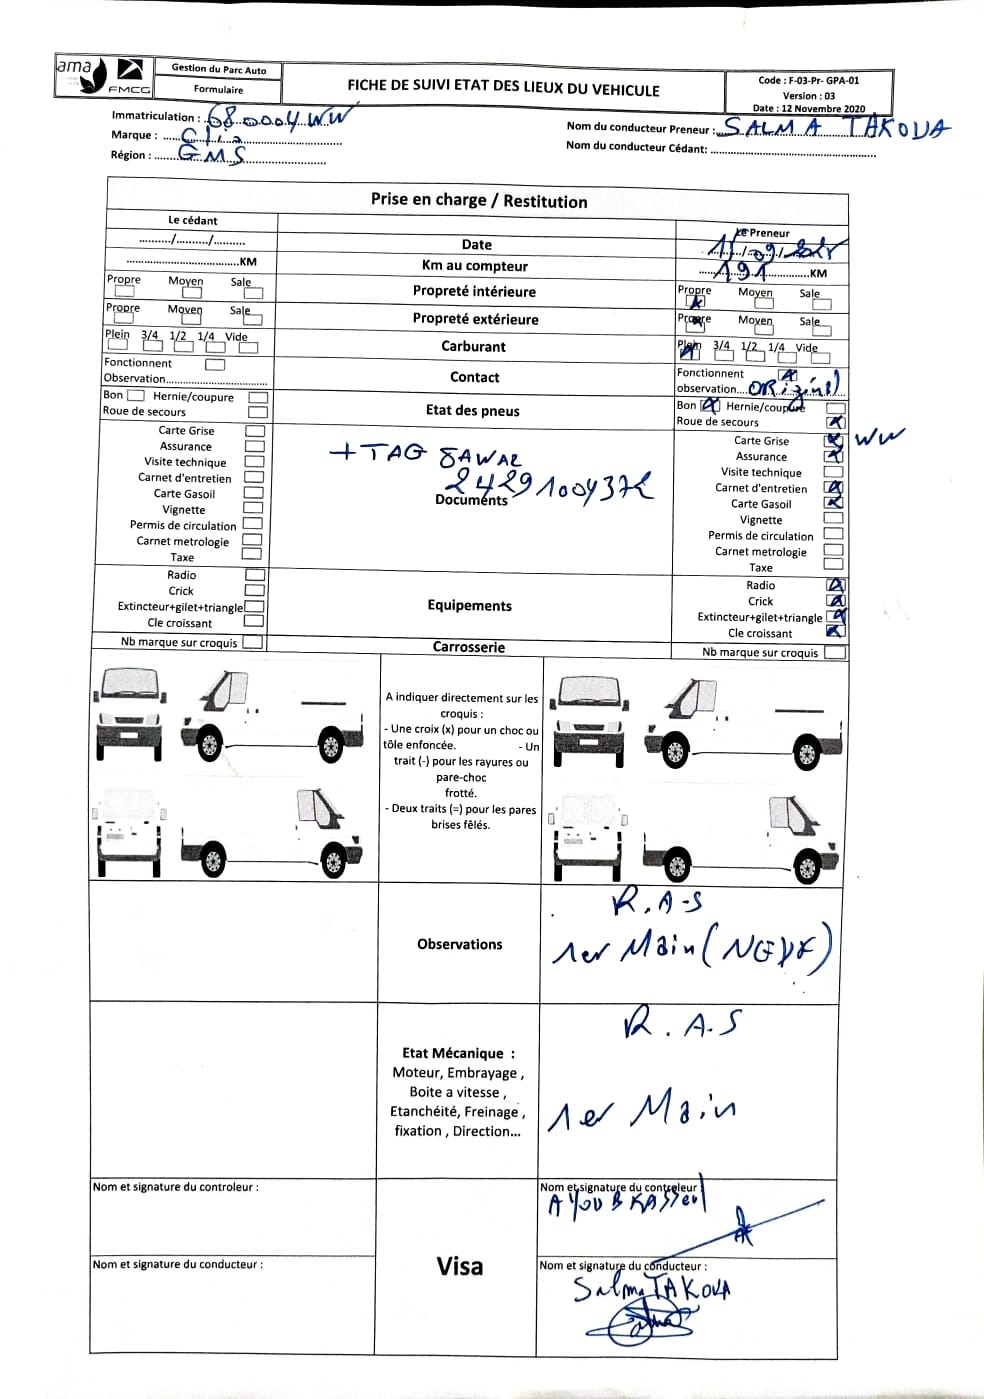 ama
FMCG
Gestion du Parc Auto
Formulaire
FICHE DE SUIVI ETAT DES LIEUX DU VEHICULE
Code : F-03-Pr- GPA-01
Version : 03
Date : 12 Novembre 2020
Immatriculation : 680004 WW
Marque : Clio
Région : GMS
Nom du conducteur Preneur : SALMA TAKOUA
Nom du conducteur Cédant:
Prise en charge / Restitution
Le cédant
Le Preneur
........../........../..........
Date
11/09/
KM
Km au compteur
191 KM
Propre Moyen Sale
Propreté intérieure
Propre Moyen Sale
Propre Moyen Sale
Propreté extérieure
Propre Moyen Sale
Plein 3/4 1/2 1/4 Vide
Carburant
Plein 3/4 1/2 1/4 Vide
Fonctionnent
Observation
Contact
Fonctionnent
observation.... ORiginal
Bon Hernie/coupure
Roue de secours
Etat des pneus
Bon Hernie/coupure
Roue de secours
Carte Grise
Assurance
Visite technique
Carnet d'entretien
Carte Gasoil
Vignette
Permis de circulation
Carnet metrologie
Taxe
+ TAG JAWAZ
Documents
Carte Grise WW
Assurance
Visite technique
Carnet d'entretien
Carte Gasoil
Vignette
Permis de circulation
Carnet metrologie
Taxe
Radio
Crick
Extincteur+gilet+triangle
Cle croissant
Equipements
Radio
Crick
Extincteur+gilet+triangle
Cle croissant
Nb marque sur croquis
Carrosserie
Nb marque sur croquis
A indiquer directement sur les
croquis :
- Une croix (x) pour un choc ou
tôle enfoncée. - Un
trait (-) pour les rayures ou
pare-choc
frotté.
- Deux traits (=) pour les pares
brises fêlés.
Observations
R.A-S
1er Main (NEUF)
Etat Mécanique :
Moteur, Embrayage ,
Boite a vitesse ,
Etanchéité, Freinage ,
fixation , Direction...
R.A.S
1er Main
Nom et signature du controleur :
Visa
Nom et signature du controleur
AYOUB
Nom et signature du conducteur :
Nom et signature du conducteur :
Salma TAKOUA